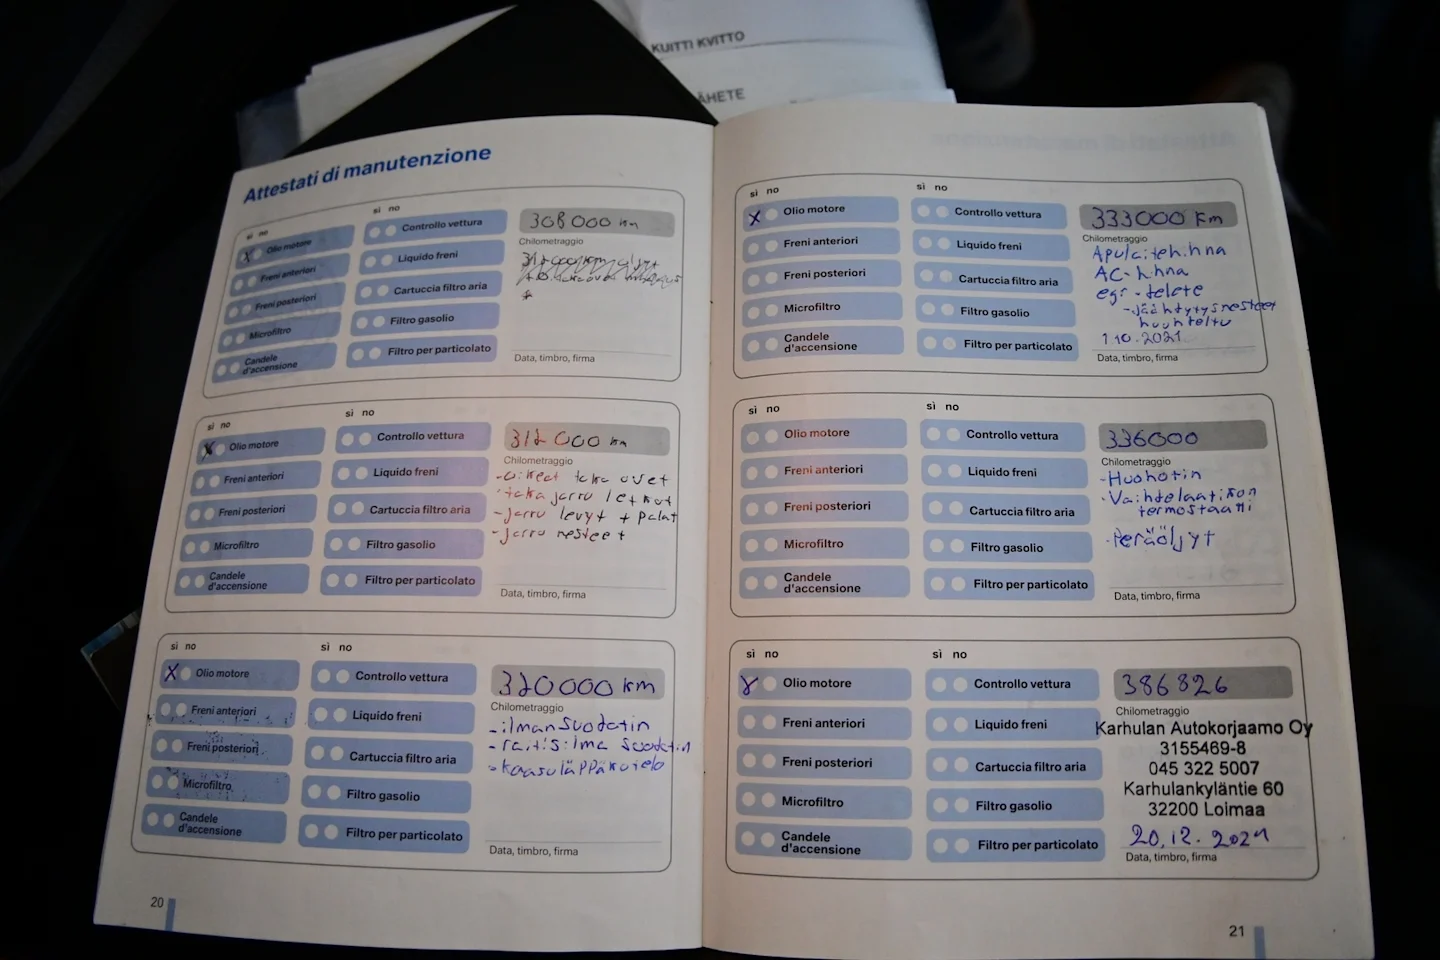 KUITTI KVITTO
ÄHETE
Attestati di manutenzione
sì no
sì no
Olio motore
Freni anteriori
Freni posteriori
Microfiltro
Candele
d'accensione
Controllo vettura
Liquido freni
Cartuccia filtro aria
Filtro gasolio
Filtro per particolato
308 000 km
Chilometraggio
Data, timbro, firma
sì no
sì no
X Olio motore
Freni anteriori
Freni posteriori
Microfiltro
Candele
d'accensione
Controllo vettura
Liquido freni
Cartuccia filtro aria
Filtro gasolio
Filtro per particolato
312 000 km
Chilometraggio
-oikeat taka ovet
-taka jarru letkut
-jarru levyt + palat
-jarru nesteet
Data, timbro, firma
sì no
sì no
X Olio motore
Freni anteriori
Freni posteriori
Microfiltro
Candele
d'accensione
Controllo vettura
Liquido freni
Cartuccia filtro aria
Filtro gasolio
Filtro per particolato
320000 km
Chilometraggio
-ilmansuodatin
-raitisilma suodatin
-kaasuläppäkotelo
Data, timbro, firma
20
sì no
sì no
X Olio motore
Freni anteriori
Freni posteriori
Microfiltro
Candele
d'accensione
Controllo vettura
Liquido freni
Cartuccia filtro aria
Filtro gasolio
Filtro per particolato
333000 km
Chilometraggio
Apulaitehihna
AC-hihna
egr-delete
-jäähdytysnesteet
huuhteltu
1.10.2021
Data, timbro, firma
sì no
sì no
Olio motore
Freni anteriori
Freni posteriori
Microfiltro
Candele
d'accensione
Controllo vettura
Liquido freni
Cartuccia filtro aria
Filtro gasolio
Filtro per particolato
336000
Chilometraggio
-Huohotin
-Vaihdelaatikon
termostaatti
-Peräöljyt
Data, timbro, firma
sì no
sì no
X Olio motore
Freni anteriori
Freni posteriori
Microfiltro
Candele
d'accensione
Controllo vettura
Liquido freni
Cartuccia filtro aria
Filtro gasolio
Filtro per particolato
386826
Chilometraggio
Karhulan Autokorjaamo Oy
3155469-8
045 322 5007
Karhulankyläntie 60
32200 Loimaa
20.12.2021
Data, timbro, firma
21